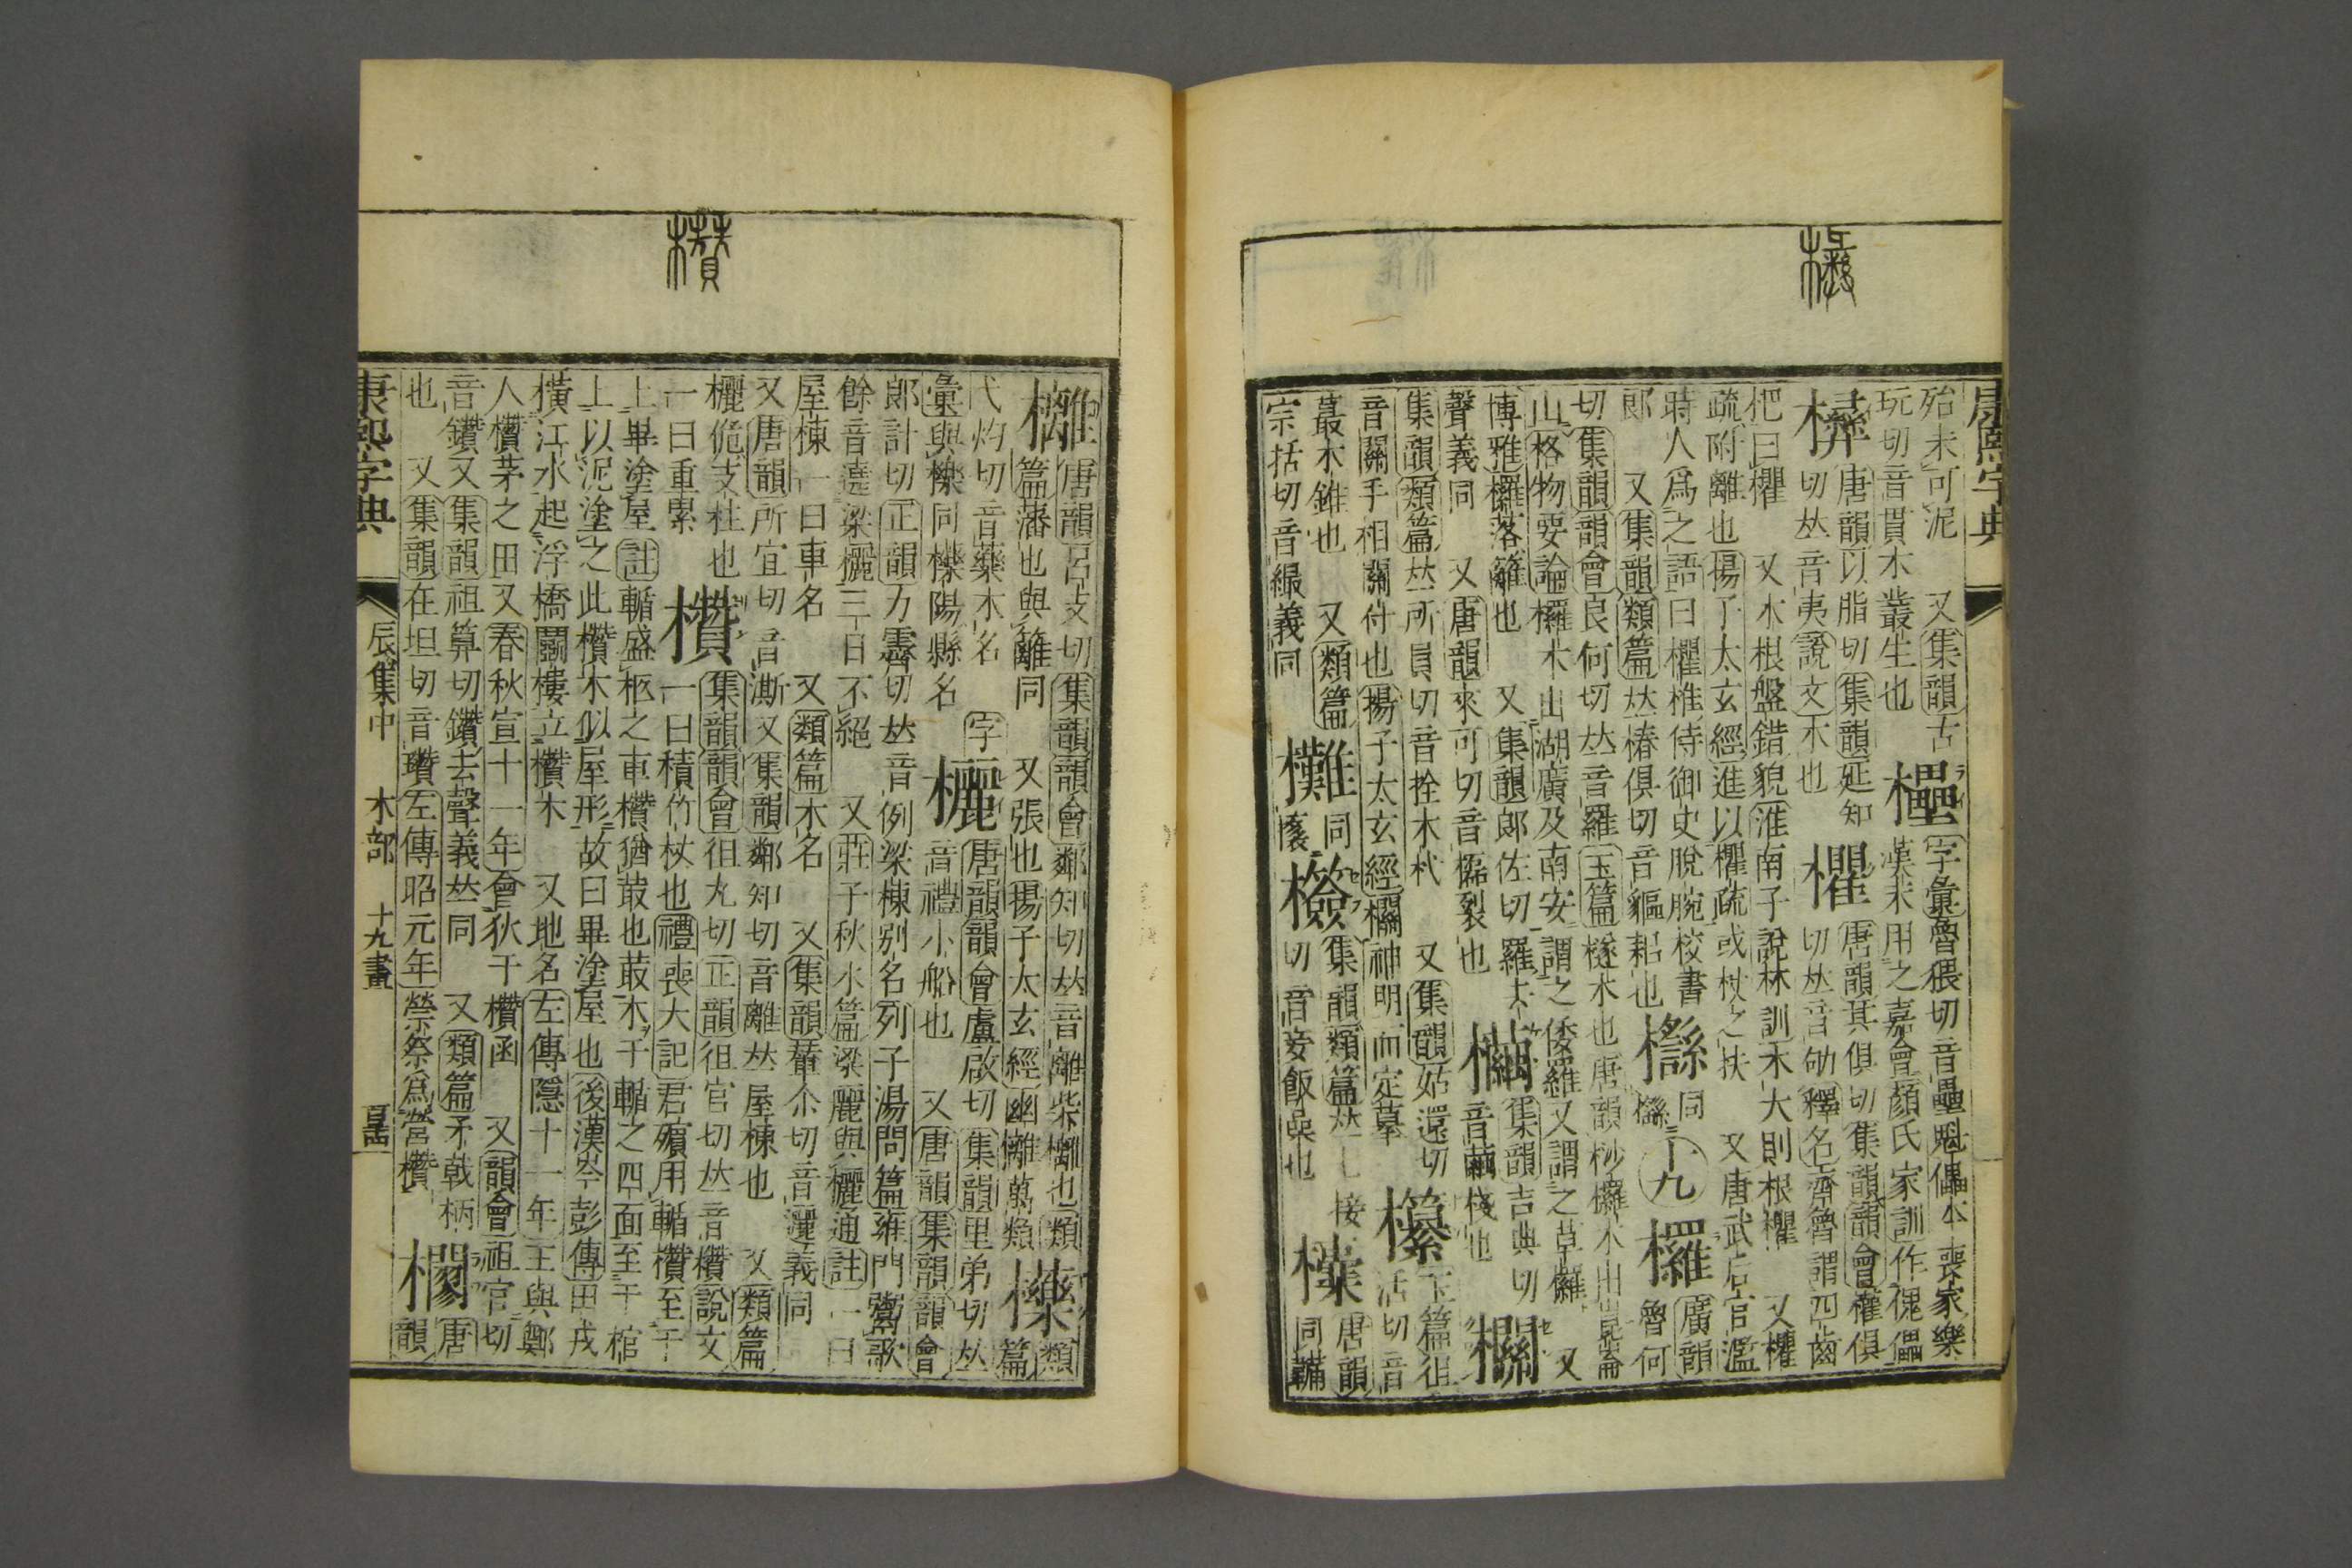 康熙字典
殆未可泥 又集韻古 字彙魯猥切音壘魁儡本喪家樂
玩切音貫木叢生也 櫑 漢末用之嘉會顏氏家訓作傀儡
彝 唐韻以脂切集韻延知 欋 唐韻其俱切集韻韻會權俱
切𠀤音夷說文木也 切𠀤音劬釋名齊魯謂四齒
杷曰欋 又木根盤錯貌淮南子說林訓木大則根欋 又欋
疏附離也揚子太玄經進以欋疏或杖之扶 又唐武后官濫
時人爲之語曰欋椎侍御史脫腕校書 同 十九 欏 廣韻
郎 又集韻類篇𠀤椿俱切音貙耜也 魯何
切集韻韻會良何切𠀤音羅玉篇檖木也唐韻桫欏木出崑崙
山格物要論欏木出湖廣及南安謂之倭欏又謂之草欏 又
博雅欏落籬也 又集韻郎佐切羅去 集韻吉典切 欄
聲義同 又唐韻來可切音𣟌裂也 音繭棧也
集韻類篇𠀤所員切音拴木杙 又集韻姑還切 欑 玉篇徂
音關手相關付也揚子太玄經欄神明而定摹 活切音
蕞木錐也 又類篇 同 集韻類篇𠀤七接 唐韻
宗括切音繓義同 切音妾飯㮎也 同
康熙字典 辰集中 木部 十九畫
欐 唐韻呂支切集韻韻會鄰知切𠀤音離柴欐也類 類
篇藩也與籬同 又張也揚子太玄經幽欐萬類 欒 篇
弋灼切音藥木名 字 欐 唐韻韻會盧啟切集韻里弟切𠀤
彙與櫟同櫟陽縣名 音禮小船也 又唐韻集韻韻會
郎計切正韻力霽切𠀤音例梁棟別名列子湯問篇雍門鬻歌
餘音遶梁欐三日不絕 又莊子秋水篇梁麗與欐通註一曰
屋棟一曰車名 又類篇木名 又集韻輦尒切音邐義同
又唐韻所宜切音澌又集韻鄰知切音離𠀤屋棟也 又類篇
欐佹支柱也 欑 集韻韻會徂丸切正韻徂官切𠀤音欑說文
一曰重累 一曰積竹杖也禮喪大記君殯用輴欑至于
上畢塗屋註輴盛柩之車欑猶菆也菆木于輴之四面至于棺
上以泥塗之此欑木似屋形故曰畢塗屋也後漢岑彭傳田戎
橫江水起浮橋鬭樓立欑木 又地名左傳隱十一年王與鄭
人欑茅之田又春秋宣十一年會狄于欑函 又韻會祖官切
音鑽又集韻祖算切鑽去聲義𠀤同 又類篇矛戟柄 唐
也 又集韻在坦切音瓚左傳昭元年禜祭爲營欑 欄 韻